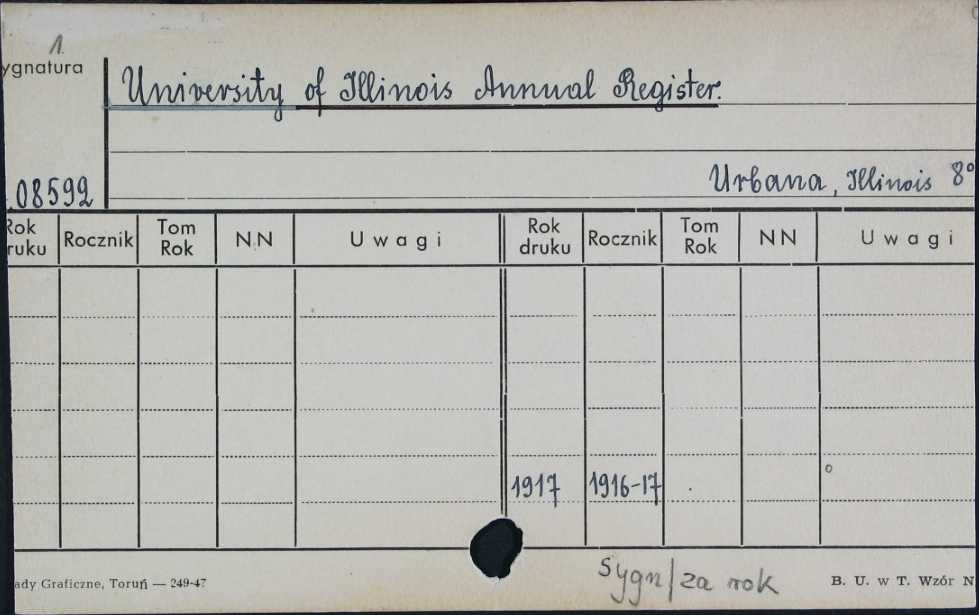 1.
ygnatura
University of Illinois Annual Register.
Urbana, Illinois 8°
.08592
Rok druku Rocznik Tom Rok NN Uwagi Rok druku Rocznik Tom Rok NN Uwagi
1917 1916-17
sygn/za rok
ady Graficzne, Toruń — 249-47 B. U. w T. Wzór N